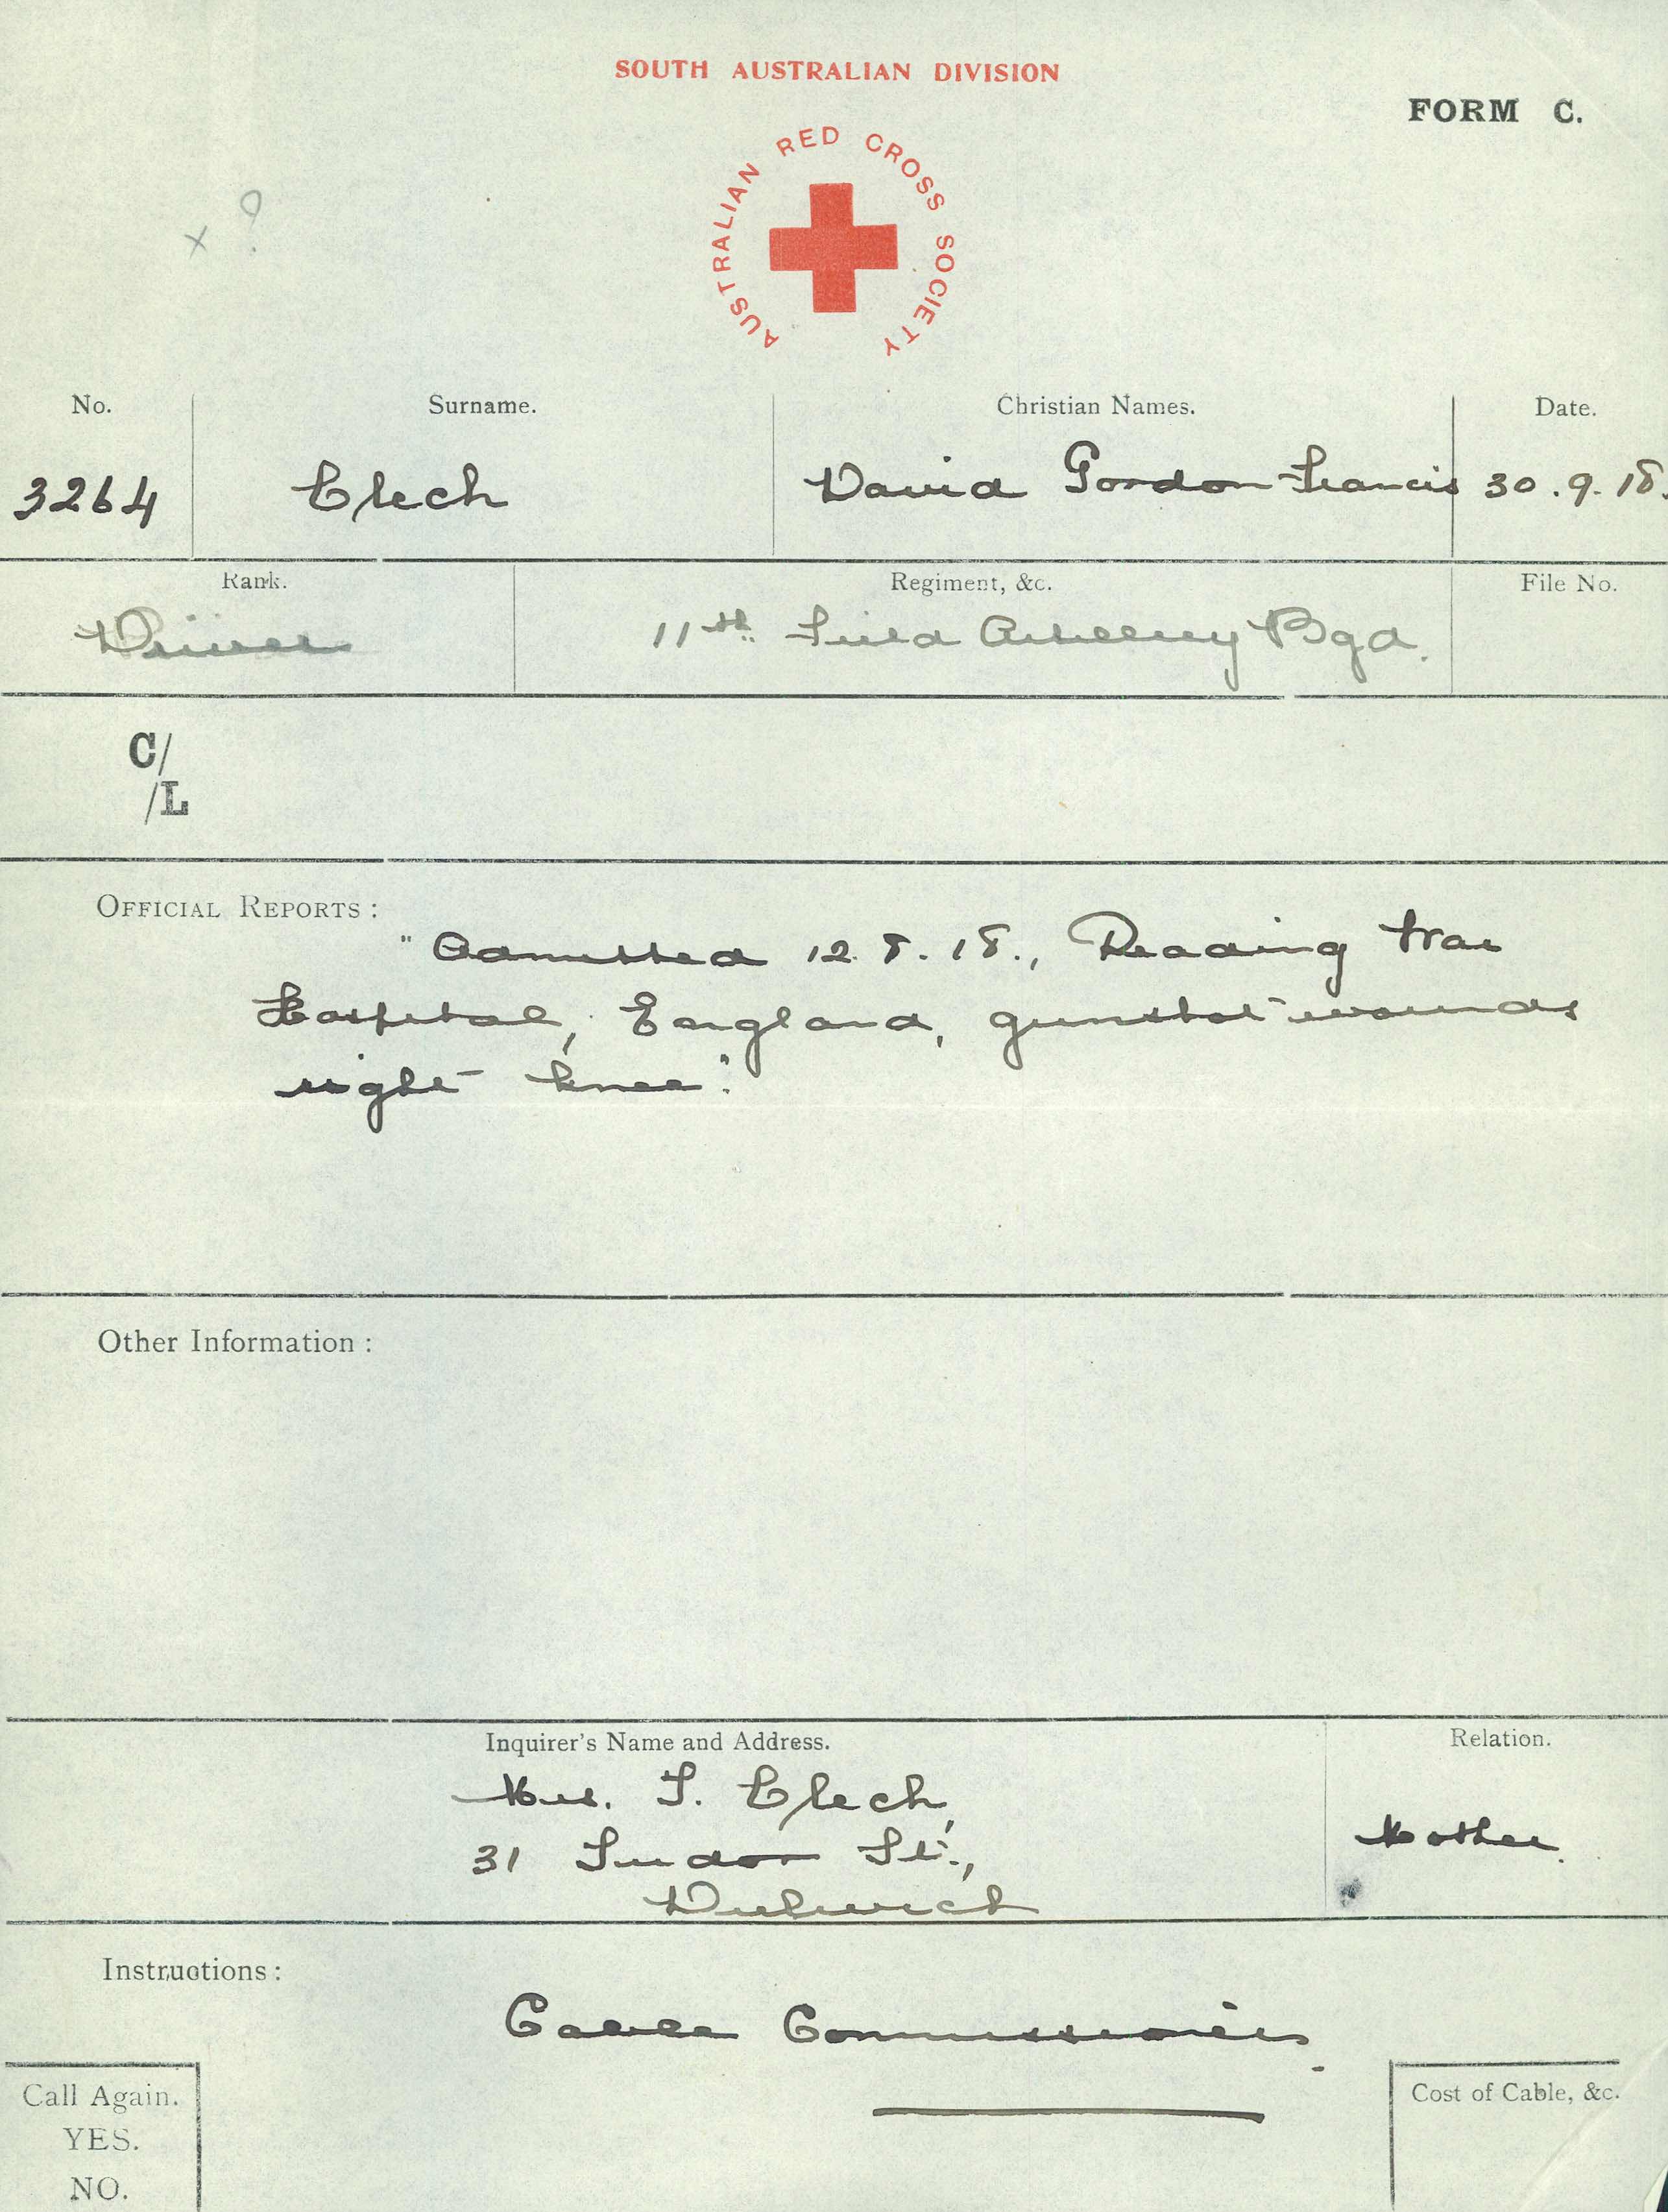 SOUTH AUSTRALIAN DIVISION
FORM C.
AUSTRALIAN RED CROSS SOCIETY
x ?
No. Surname. Christian Names. Date.
3264 Clech David Gordon Francis 30.9.18.
Rank. Regiment, &c. File No.
Driver 11th Field Artillery Bgd.
C/
/L
OFFICIAL REPORTS :
"Admitted 12.8.18., Reading War
Hospital, England, gunshot wounds
right knee".
Other Information :
Inquirer's Name and Address. Relation.
Mrs. F. Clech,
31 Tudor St., Mother.
Dulwich
Instructions :
Cable Commissioners.
Call Again. Cost of Cable, &c.
YES.
NO.